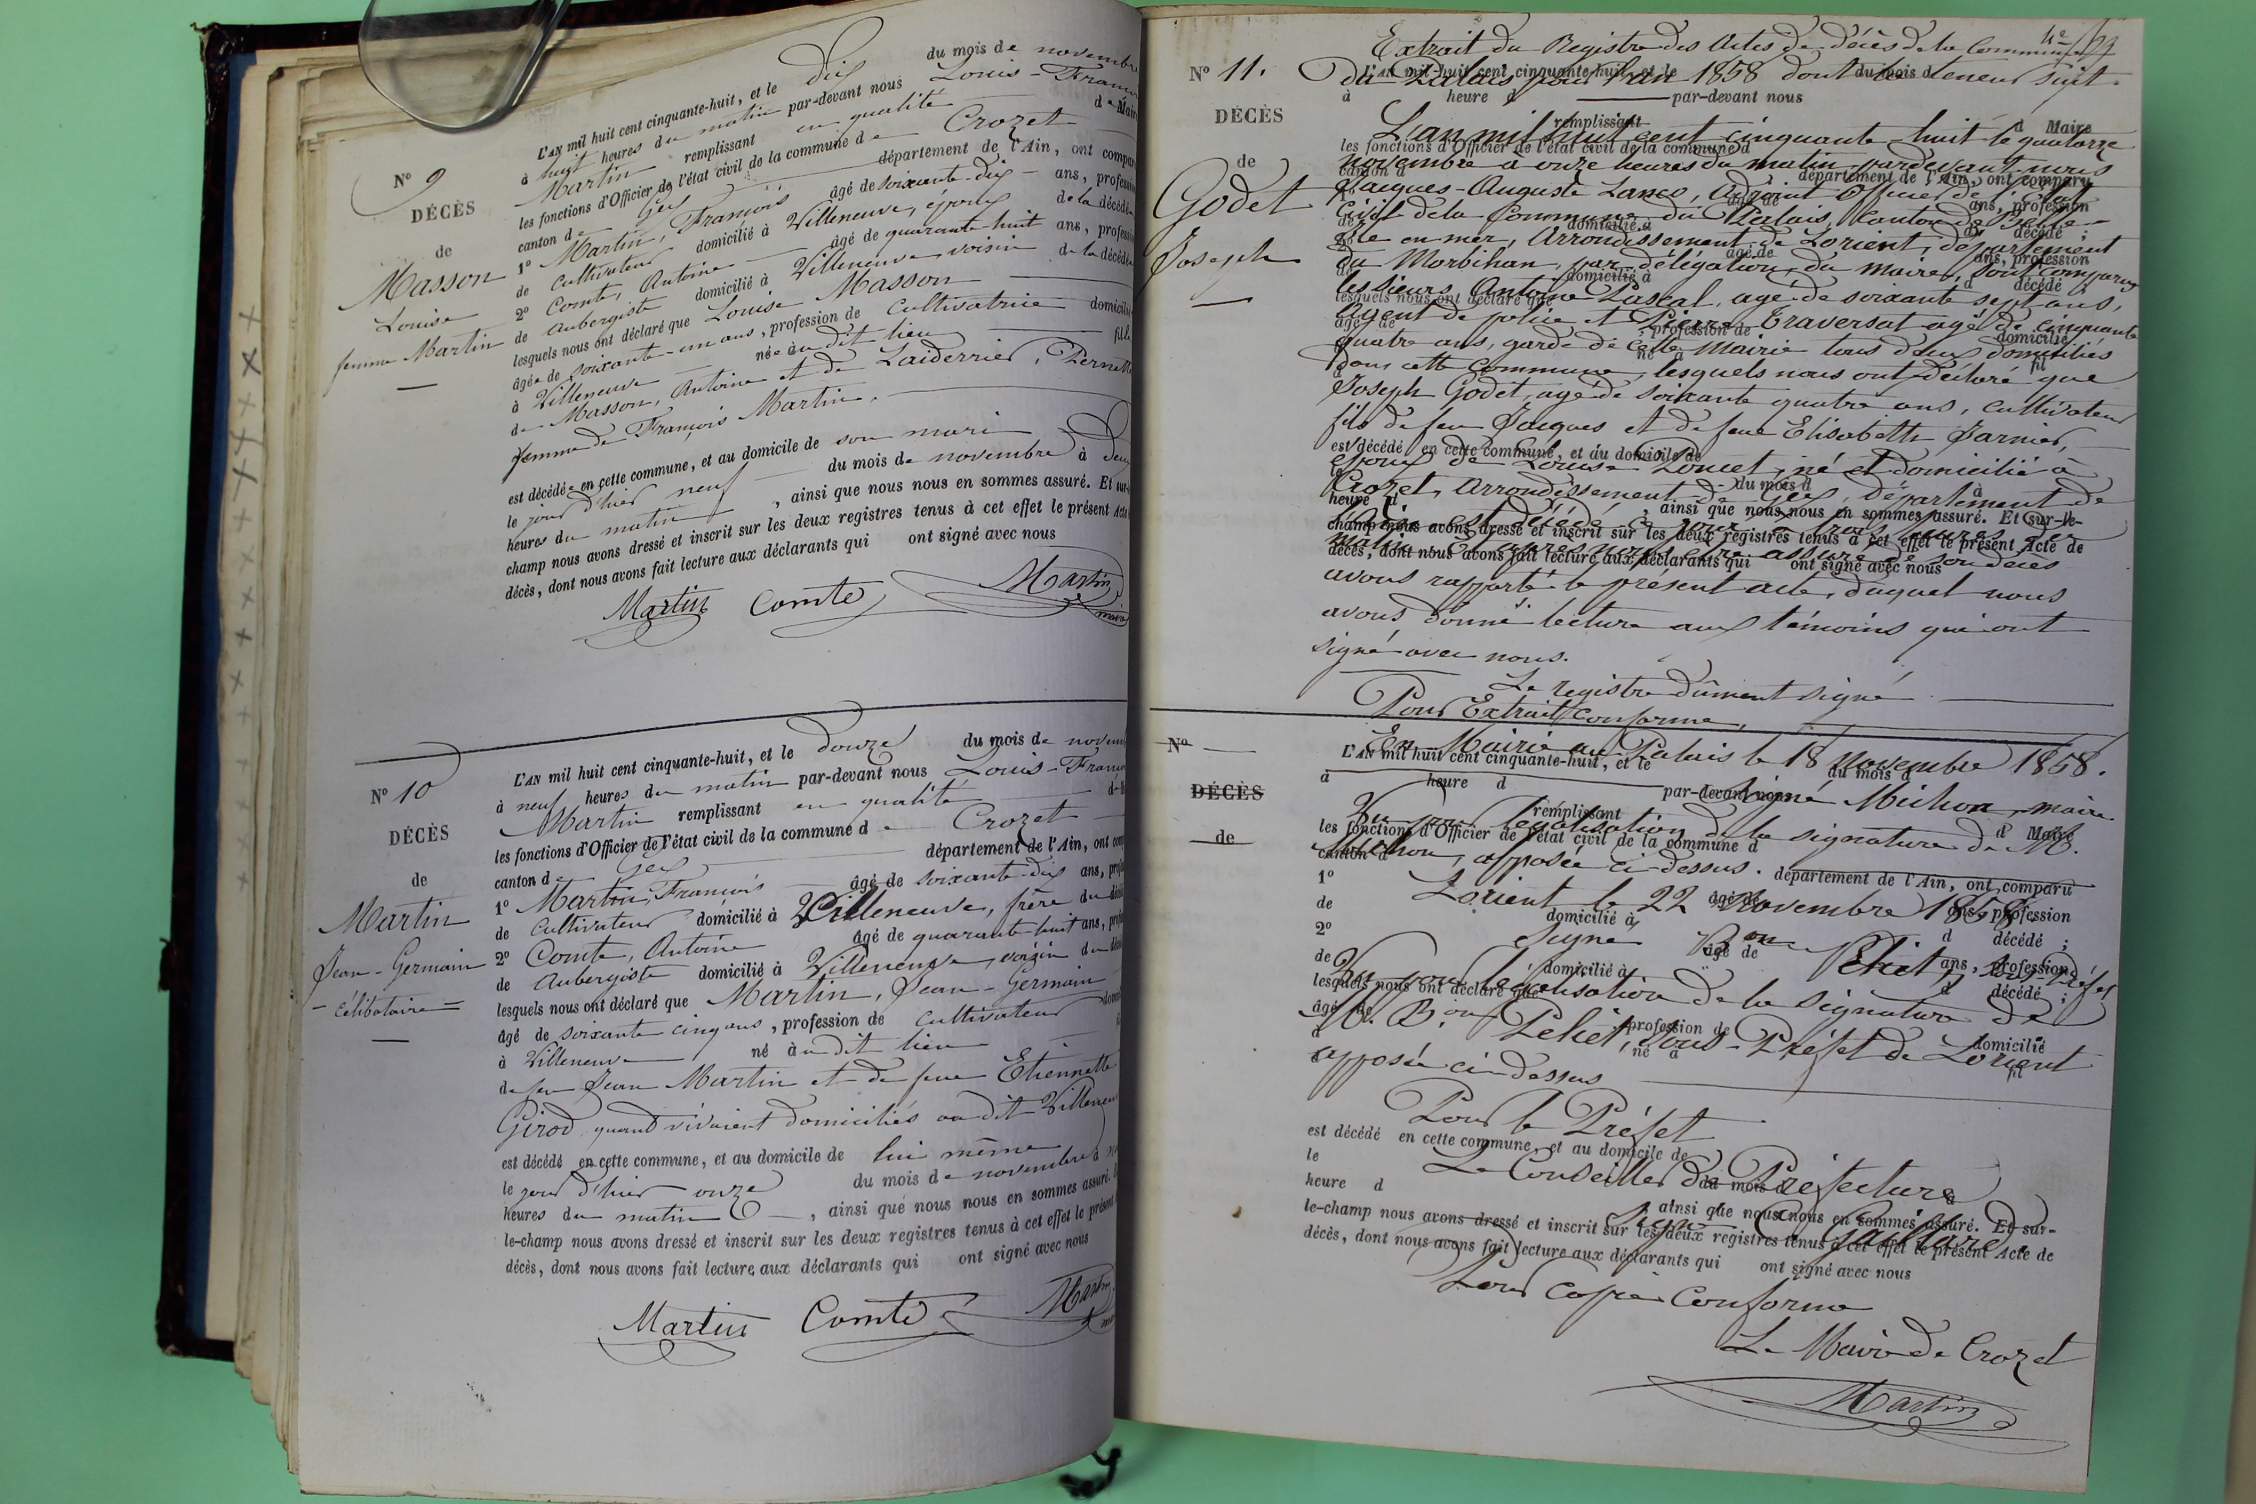 L'AN mil huit cent cinquante-huit, et le dix du mois de novembre
à huit heures du matin par-devant nous Louis-François
Martin remplissant en qualité de Maire
les fonctions d'Officier de l'état civil de la commune de Crozet
canton de Gex département de l'Ain, ont comparu
N° 9
DÉCÈS
de
Masson
Louise
femme Martin
1° Martin, François âgé de soixante-dix ans, profession
de cultivateur domicilié à Villeneuve, époux de la décédée
2° Comte, Antoine âgé de quarante huit ans, profession
de aubergiste domicilié à Villeneuve voisin de la décédée
lesquels nous ont déclaré que Louise Masson
âgée de soixante-un ans, profession de cultivatrice domiciliée
à Villeneuve née au dit lieu fille
de Masson, Antoine et de Laiderrier, Pernette
femme de François Martin.
est décédée en cette commune, et au domicile de son mari
le jour d'hier neuf du mois de novembre à deux
heures du matin, ainsi que nous nous en sommes assuré. Et sur-le-
champ nous avons dressé et inscrit sur les deux registres tenus à cet effet le présent Acte
décès, dont nous avons fait lecture aux déclarants qui ont signé avec nous
Martin Comte Martin
maire
L'AN mil huit cent cinquante-huit, et le douze du mois de novembre
à neuf heures du matin par-devant nous Louis-François
Martin remplissant en qualité de
les fonctions de l'Officier de l'état civil de la commune de Crozet
canton de Gex département de l'Ain, ont comp
N° 10
DÉCÈS
de
Martin
Jean-Germain
- célibataire =
1° Martin, François âgé de soixante-dix ans, prof
de cultivateur domicilié à Villeneuve, frère du décédé
2° Comte, Antoine âgé de quarante huit ans, prof
de aubergiste domicilié à Villeneuve, voisin du décédé
lesquels nous ont déclaré que Martin, Jean-Germain
âgé de soixante cinq ans, profession de cultivateur domi
à Villeneuve né au dit lieu
de feu Jean Martin et de feue Etiennette
Girod quand vivaient domiciliés au dit Villeneuve
est décédé en cette commune, et au domicile de lui même
le jour d'hier onze du mois de novembre à
heures du matin, ainsi que nous nous en sommes assuré.
le-champ nous avons dressé et inscrit sur les deux registres tenus à cet effet le présent
décès, dont nous avons fait lecture aux déclarants qui ont signé avec nous
Martin Comte Martin
N° 11.
DÉCÈS
de
Godet
Joseph
Extrait du Registre des Actes de décès de la Commune
du Palais pour l'an 1858 dont la teneur suit.
L'an mil huit cent cinquante huit le quatorze
novembre à onze heures du matin pardevant nous
Jacques-Auguste Lanco, Adjoint Officier de l'état
Civil de la Commune du Palais, Canton de Belle-
Ile en mer, Arrondissement de Lorient, département
du Morbihan, par délégation du maire, sont comparus
les Sieurs Antoine Pascal, agé de soixante sept ans,
Agent de police et Pierre Traversat agé de cinquante
quatre ans, garde de cette Mairie tous deux domiciliés
dans cette Commune, lesquels nous ont déclaré que
Joseph Godet, agé de soixante quatre ans, cultivateur
fils de feu Jacques et de feue Elisabeth Jarnier,
époux de Louise Poncet, né et domicilié à
Crozet, Arrondissement de Gex, Département de
l'Ain est décédé ce jour à trois heures du
matin. Et après nous être assuré de son décès
avons rapporté le présent acte, duquel nous
avons donné lecture aux témoins qui ont
signé avec nous.
Le registre dûment signé
Pour Extrait conforme,
En Mairie au Palais le 18 novembre 1858.
Signé Michon, maire
Vu pour légalisation de la signature de M.
Michon, apposée ci-dessus.
Lorient le 22 Novembre 1858
Signé Bon Pehet, sous-Préfet
Vu pour légalisation de la signature de
M. Bon Pehet, Sous-Préfet de Lorient
apposée ci-dessus
Pour le Préfet
Le Conseiller de Préfecture
Signé Gaillard.
Pour Copie Conforme
Le Maire de Crozet
Martin
N°
DÉCÈS
de
L'AN mil huit cent cinquante-huit, et le du mois d
à heure d par-devant nous
remplissant d Maire
les fonctions d'Officier de l'état civil de la commune d
canton d département de l'Ain, ont comparu
1° âgé de ans, profession
de domicilié à d décédé ;
2° âgé de ans, profession
de domicilié à d décédé ;
lesquels nous ont déclaré que
âgé de profession de domicilié
à né à fil
est décédé en cette commune, et au domicile de
le du mois d à
heure d, ainsi que nous nous en sommes assuré. Et sur-
le-champ nous avons dressé et inscrit sur les deux registres tenus à cet effet le présent Acte de
décès, dont nous avons fait lecture aux déclarants qui ont signé avec nous